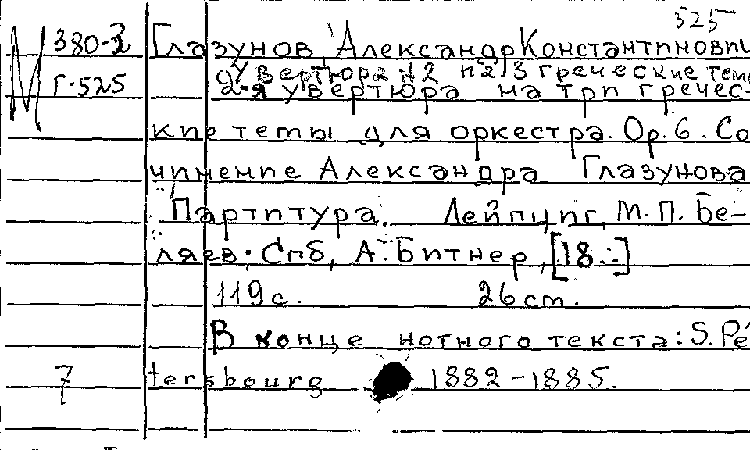 525
М 380-3 Глазунов Александр Константинович
Увертюра №2 на 3 греческие темы
Г-525 2-я увертюра на три гречес-
кие темы для оркестра. Op. 6. Со
чинение Александра Глазунова
Партитура. Лейпциг, М. П. Бе-
ляев. Спб, А. Битнер, [18..]
119 с. 26 cm.
В конце нотного текста: S. Pé
7 tersbourg 1882-1885.